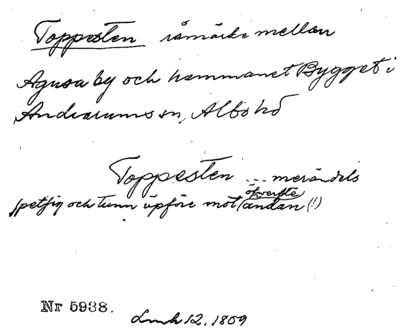 Toppesten råmärke mellan
Agusa by och hemmanet Bygget i
Andrarums sn, Albo hd
Toppesten ... merändels
spetsig och tunn upföre mot öfverste ändan (!)
Nr 5938.
Lmh 12, 1809